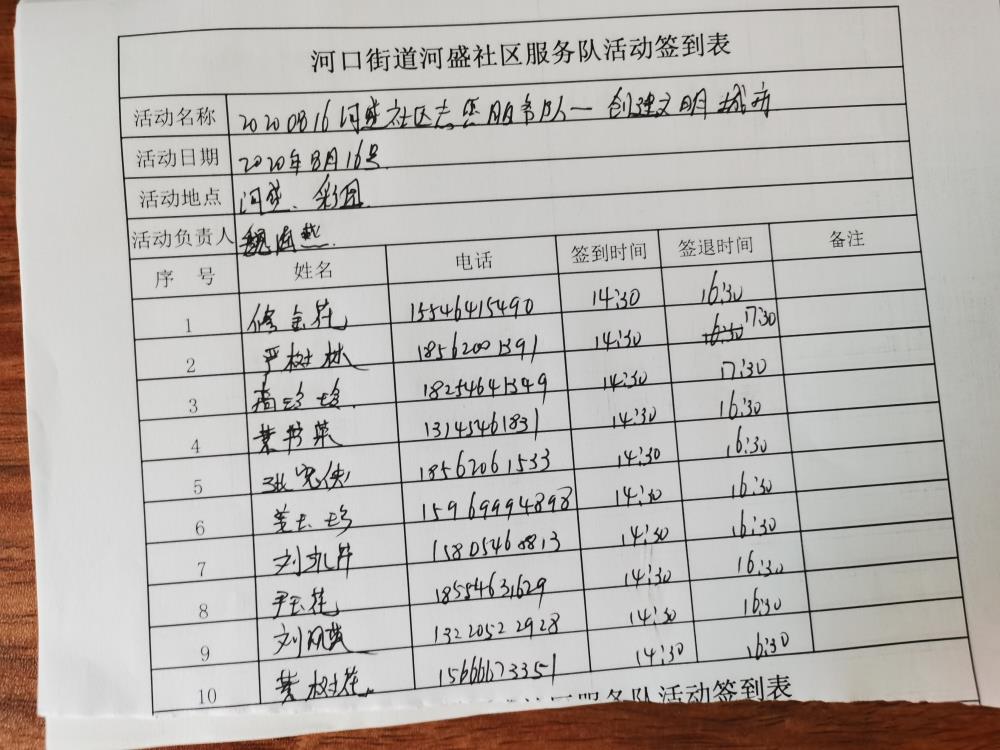 河口街道河盛社区服务队活动签到表
活动名称 20200816河盛社区志愿服务队—创建文明城市
活动日期 2020年8月16号
活动地点 河盛、彩园
活动负责人 魏海燕
序 号 姓名 电话 签到时间 签退时间 备注
1 修金花 15546415490 14:30 16:30
2 严树林 18562001391 14:30 16:30 17:30
3 高珍珍 18254641349 14:30 17:30
4 黄书英 13145461831 14:30 16:30
5 张宪俠 18562061533 14:30 16:30
6 14:30 16:30
7 15805468813 14:30 16:30
8 尹玉花 18554631629 14:30 16:30
9 刘凤英 13220522928 14:30 16:30
10 黄树花 15666673351 14:30 16:30
社区服务队活动签到表